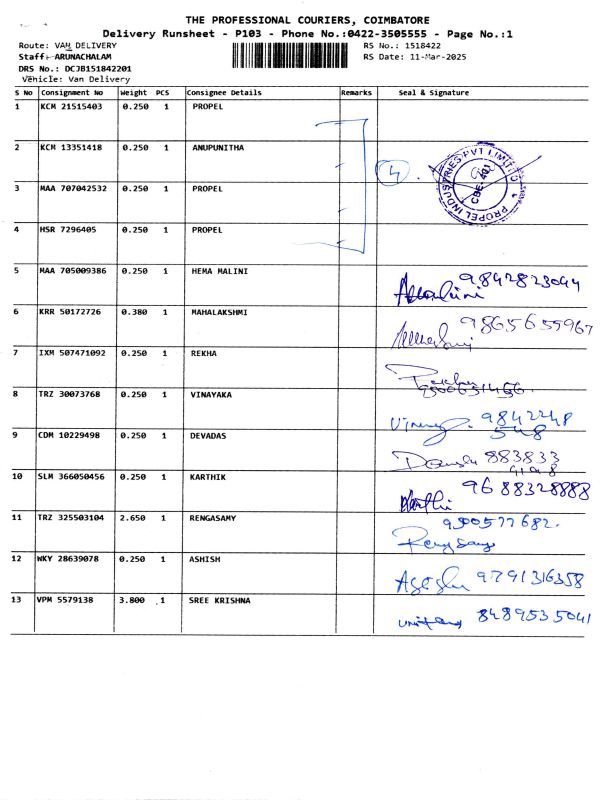 THE PROFESSIONAL COURIERS, COIMBATORE
Delivery Runsheet - P103 - Phone No.:0422-3505555 - Page No.:1
Route: VAN DELIVERY RS No.: 1518422
Staff: ARUNACHALAM RS Date: 11-Mar-2025
DRS No.: DCJB151842201
Vehicle: Van Delivery
S No Consignment No Weight PCS Consignee Details Remarks Seal & Signature
1 KCM 21515403 0.250 1 PROPEL
2 KCM 13351418 0.250 1 ANUPUNITHA
4.
PROPEL INDUSTRIES PVT LIMITED
CBE-401
3 MAA 707042532 0.250 1 PROPEL
4 HSR 7296405 0.250 1 PROPEL
5 MAA 705009386 0.250 1 HEMA MALINI
9842823044
6 KRR 50172726 0.380 1 MAHALAKSHMI
9865655967
7 IXM 507471092 0.250 1 REKHA
8 TRZ 30073768 0.250 1 VINAYAKA
9842248
548
9 CDM 10229498 0.250 1 DEVADAS
883833
10 SLM 366050456 0.250 1 KARTHIK
9688328888
Karthi
11 TRZ 325503104 2.650 1 RENGASAMY
9500577682.
Rengsamy
12 WKY 28639078 0.250 1 ASHISH
9791316358
13 VPM 5579138 3.800 1 SREE KRISHNA
8489535041